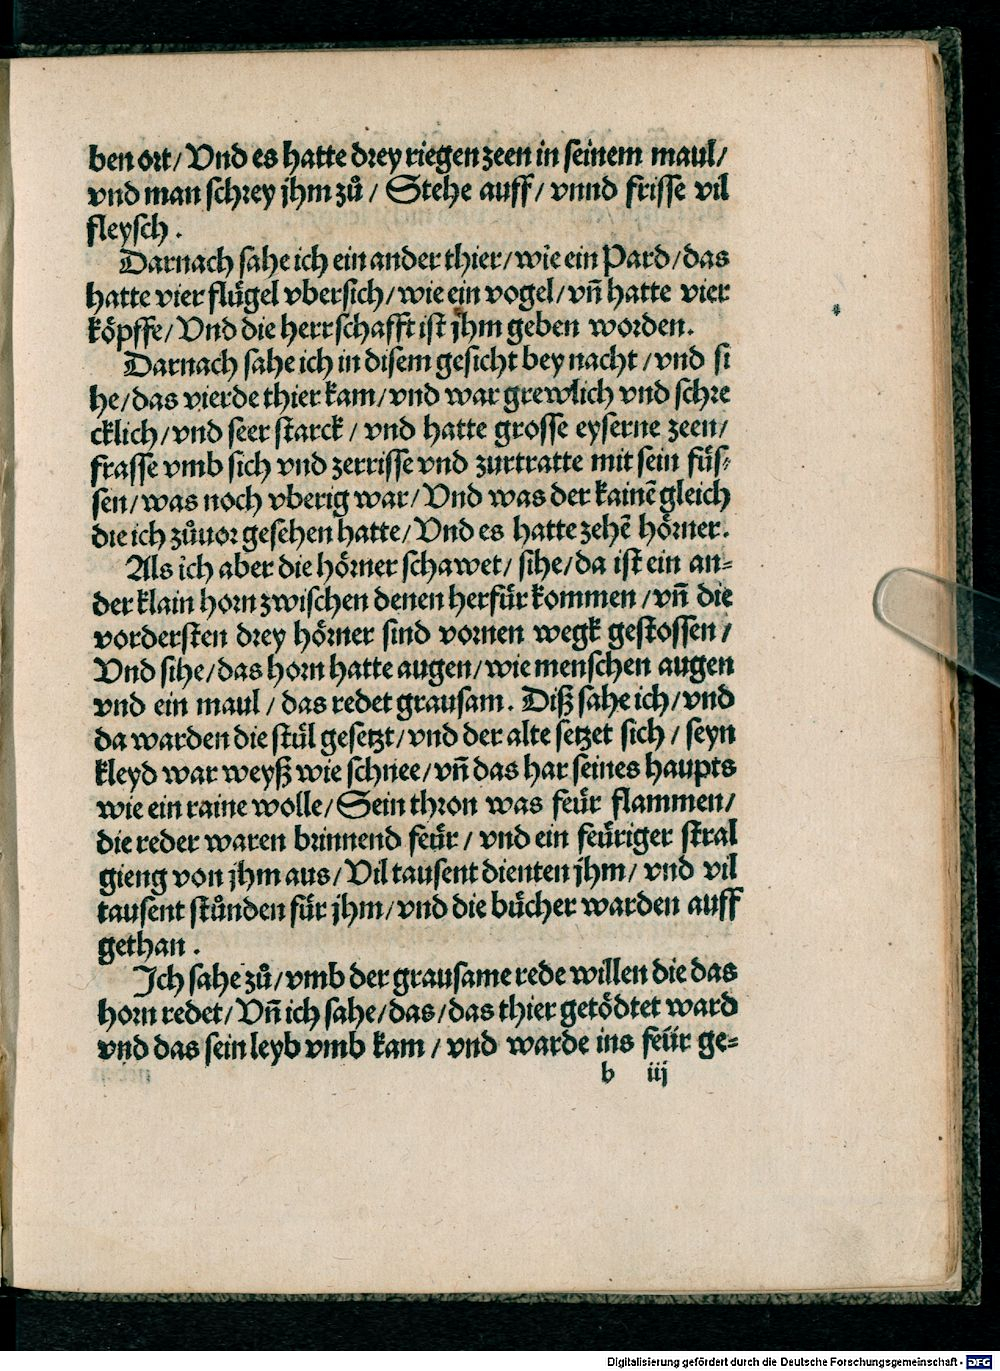 ben ort/ Vnd es hatte drey riegen zeen in seinem maul/
vnd man schrey jhm zů/ Stehe auff/ vnnd frisse vil
fleysch.
Darnach sahe ich ein ander thier/ wie ein Pard/ das
hatte vier flügel vbersich/ wie ein vogel/ vñ hatte vier
köpffe/ Vnd die herrschafft ist jhm geben worden.
Darnach sahe ich in disem gesicht bey nacht/ vnd si
he/ das vierde thier kam/ vnd war grewlich vnd schre
cklich/ vnd seer starck/ vnd hatte grosse eyserne zeen/
frasse vmb sich vnd zerrisse vnd zurtratte mit sein füs-
sen/ was noch vberig war/ Vnd was der kainē gleich
die ich zůuor gesehen hatte/ Vnd es hatte zehē hörner.
Als ich aber die hörner schawet/ sihe/ da ist ein an-
der klain horn zwischen denen herfür kommen/ vñ die
vordersten drey hörner sind vornen wegk gestossen/
Vnd sihe/ das horn hatte augen/ wie menschen augen
vnd ein maul/ das redet grausam. Diß sahe ich/ vnd
da warden die stül gesetzt/ vnd der alte setzet sich/ seyn
kleyd war weyß wie schnee/ vñ das har seines haupts
wie ein raine wolle/ Sein thron was feür flammen/
die reder waren brinnend feür/ vnd ein feüriger stral
gieng von jhm aus/ Vil tausent dienten jhm/ vnd vil
tausent stůnden für jhm/ vnd die bücher warden auff
gethan.
Ich sahe zů/ vmb der grausame rede willen die das
horn redet/ Vñ ich sahe/ das/ das thier getödtet ward
vnd das sein leyb vmb kam/ vnd warde ins feür ge-
b iij
Digitalisierung gefördert durch die Deutsche Forschungsgemeinschaft - DFG